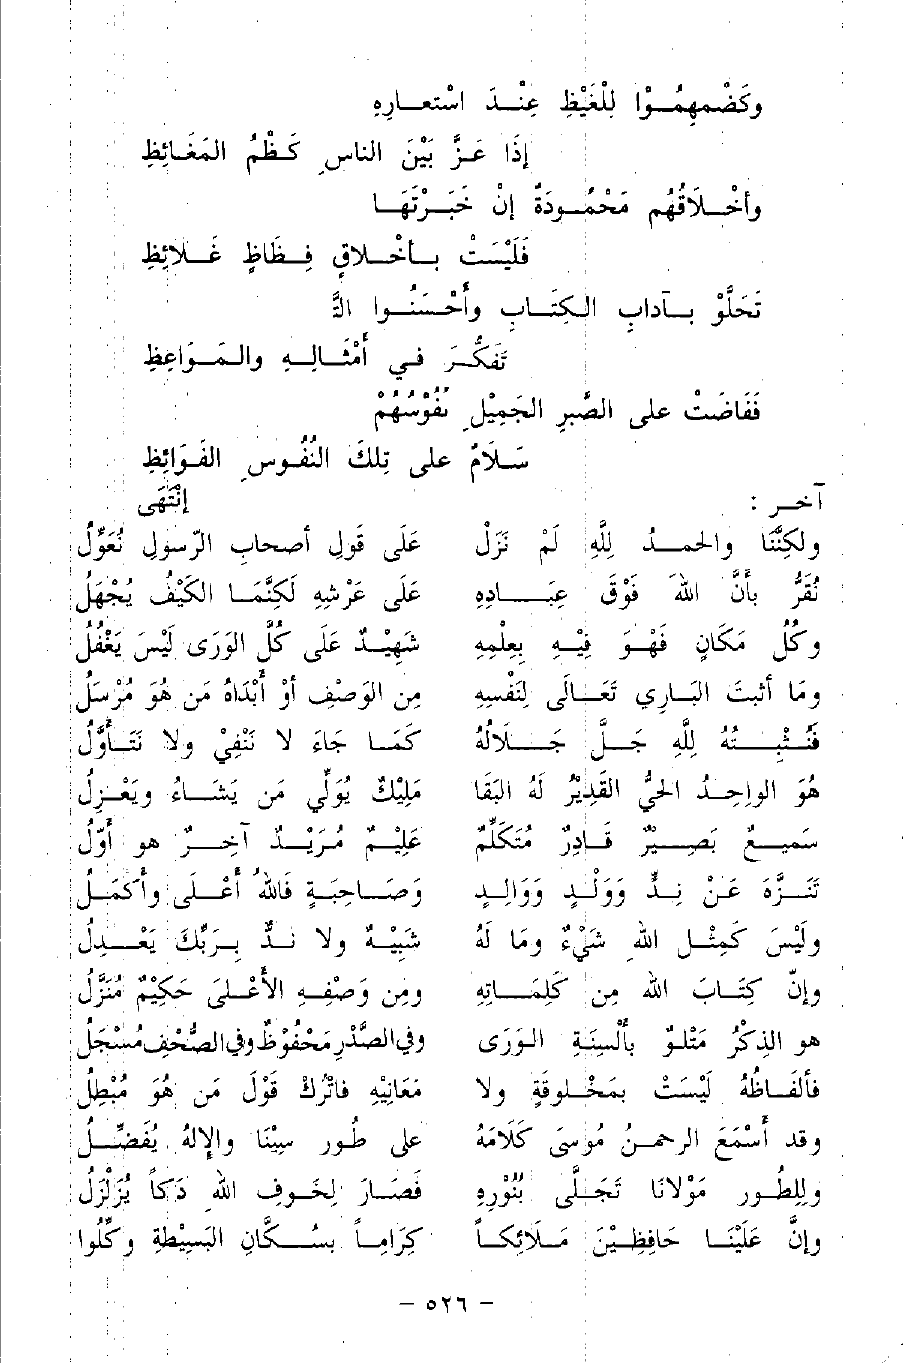 وكَضْمِهِمُــوْا لِلْغَيْظِ عِنْــدَ اسْتعــارِهِ
إذَا عَــزَّ بَيْنَ الناسِ كَــظْمُ المَغَــائِظِ
وأخْــلَاقُهُم مَحْمُــودَةٌ إنْ خَبَــرْتَهَــا
فَلَيْسَــتْ بــأخْــلاقٍ فِــظَاظٍ غَــلائِظِ
تَحَلَّوْ بــآدابِ الــكِتَــابِ وأحْسَنُــوا الْـ
تَفَكُّــرَ فــي أَمْثَــالِــهِ والمَــوَاعِظِ
فَفَاضَتْ على الصَّبرِ الجَمِيْلِ نُفُوْسُهُمْ
سَــلَامٌ على تِلكَ النُّفُوسِ الفَــوَائِظِ
إنْتَهَى
آخــر :
ولكِنَّنَا والحمــدُ لِلَّهِ لَمْ نَزَلْ عَلَى قَولِ أصحابِ الرَّسولِ نُعَوِّلُ
نُقَرُّ بأنَّ اللهَ فَوْقَ عِبَــادِهِ عَلَى عَرْشِهِ لَكِنَّمَــا الكَيْفُ يُجْهَلُ
وكُلُّ مَكَانٍ فَهْــوَ فِيْــهِ بِعِلْمِهِ شَهِيْــدٌ عَلَى كُلِّ الوَرَى لَيْسَ يَغْفُلُ
ومَا أثْبَتَ البَــارِي تَعَــالَى لِنَفْسِهِ مِن الوَصْفِ أوْ أَبْدَاهُ مَن هُوَ مُرْسَلُ
فَنُثْبِــتُهُ لِلَّهِ جَــلَّ جَــلَالُهُ كَمَــا جَاءَ لا نَنْفِيْ ولا نَتَــأوَّلُ
هُوَ الواحِــدُ الحَيُّ القَدِيْرُ لَهُ البَقَا مَلِيْكٌ يُوَلِّي مَن يَشَــاءُ ويَعْــزِلُ
سَمِيــعٌ بَصِــيْرٌ قَــادِرٌ مُتَكَلِّمٌ عَلِيْــمٌ مُرَيْــدٌ آخِــرٌ هو أَوَّلُ
تَنَــزَّهَ عَــنْ نِــدٍّ وَوَلْــدٍ وَوَالِــدٍ وَصَــاحِبَــةٍ فَاللهُ أَعْــلَى وأكمَــلُ
ولَيْسَ كَمِثْــلِ اللهِ شَيْءٌ ومَا لَهُ شَبِيْــهٌ ولا نِــدٌّ بِــرَبِّكَ يَعْــدِلُ
وإنَّ كِتَــابَ اللهِ مِن كَلِمَــاتِهِ ومِن وَصْفِــهِ الأَعْلــىَ حَكِيْمٌ مُنَزَّلُ
هو الذِكْرُ مَتْلــوٌّ بألْسِنَةِ الــوَرَى وفي الصَّدْرِ مَحْفُوظٌ وفي الصُّحْفِ مُسْجَلُ
فألفَــاظُهُ لَيْسَــتْ بمَخْــلوقَةٍ ولا مَعَانِيْهِ فَاتْرُكْ قَوْلَ مَن هُوَ مُبْطِلُ
وقد أَسْمَعَ الرحمــنُ مُوسَى كَلَامَهُ على طُورِ سِيْنَا والإلهُ يُفَضِّــلُ
ولِلطُورِ مَوْلَانَا تَجَــلَّى بِنُوْرِهِ فَصَــارَ لِخَوفِ اللهِ دَكــاً يُزَلْزَلُ
وإنَّ عَلَيْنَــا حَافِظِــيْنَ مَــلَائِكــاً كِرَامــاً بسُــكَّانِ البَسِيْطَةِ وكِّلُوا
– ٥٢٦ –